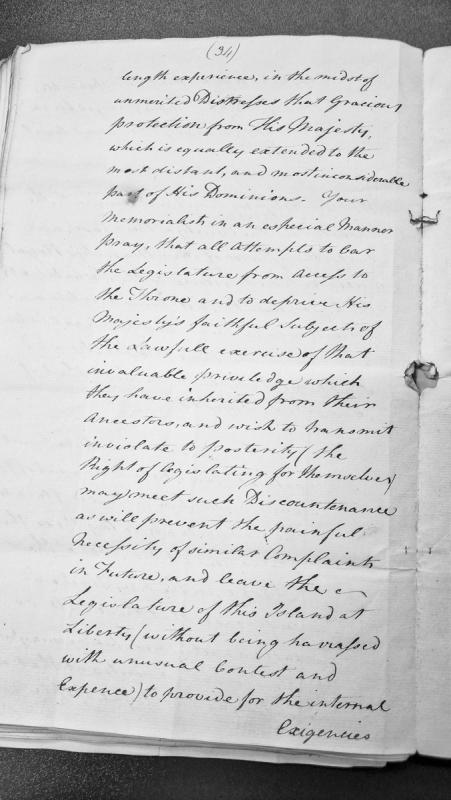 (34)
length experience, in the midst of
unmerited Distresses that Gracious
protection from His Majesty,
which is equally extended to the
most distant, and most inconsiderable
part of His Dominions. Your
Memorialists in an especial Manner
pray, that all Attempts to bar
the Legislature from Access to
the Throne and to deprive His
Majesty's faithful Subjects of
the Lawfull exercise of that
invaluable priviledge which
they have inherited from their
Ancestors, and wish to transmit
inviolate to posterity (the
Right of legislating for themselves)
may meet such Discountenance
as will prevent the painful
necessity of similar Complaints
in Future, and leave the
Legislature of this Island at
Liberty (without being harrassed
with unusual Contest and
Expence) to provide for the internal
Exigencies